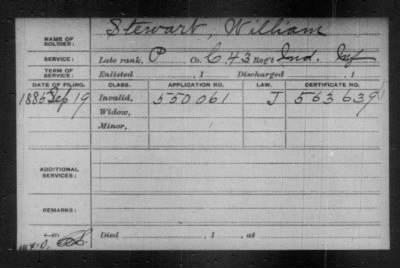 NAME OF SOLDIER: Stewart, William
SERVICE: Late rank, P Co. C, 43 Reg't Ind. Inf
TERM OF SERVICE: Enlisted , 1 Discharged , 1
DATE OF FILING. CLASS. APPLICATION NO. LAW. CERTIFICATE NO.
1885 Sep 19 Invalid, 550061 J 563639
Widow,
Minor,
ADDITIONAL SERVICES:
REMARKS:
Died , 1 , at